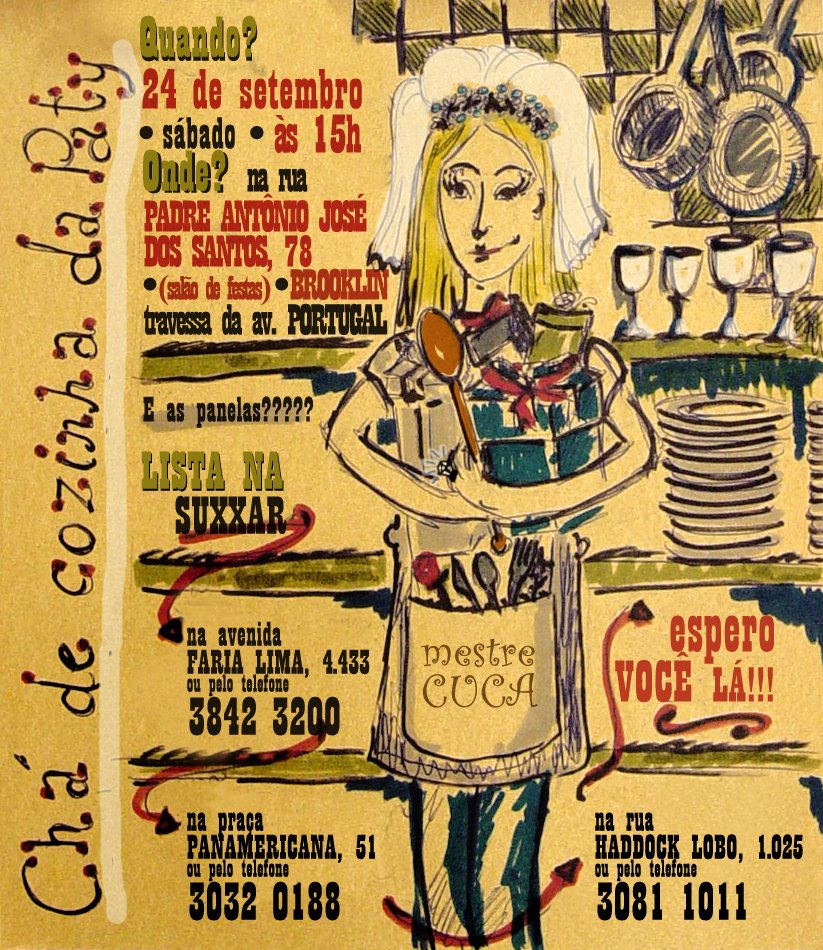 Chá de cozinha da Paty
Quando?
24 de setembro
• sábado • às 15h
Onde? na rua
PADRE ANTÔNIO JOSÉ
DOS SANTOS, 78
• (salão de festas) • BROOKLIN
travessa da av. PORTUGAL
E as panelas?????
LISTA NA
SUXXAR
na avenida
FARIA LIMA, 4.433
ou pelo telefone
3842 3200
mestre
CUCA
espero
VOCÊ LÁ!!!
na praça
PANAMERICANA, 51
ou pelo telefone
3032 0188
na rua
HADDOCK LOBO, 1.025
ou pelo telefone
3081 1011